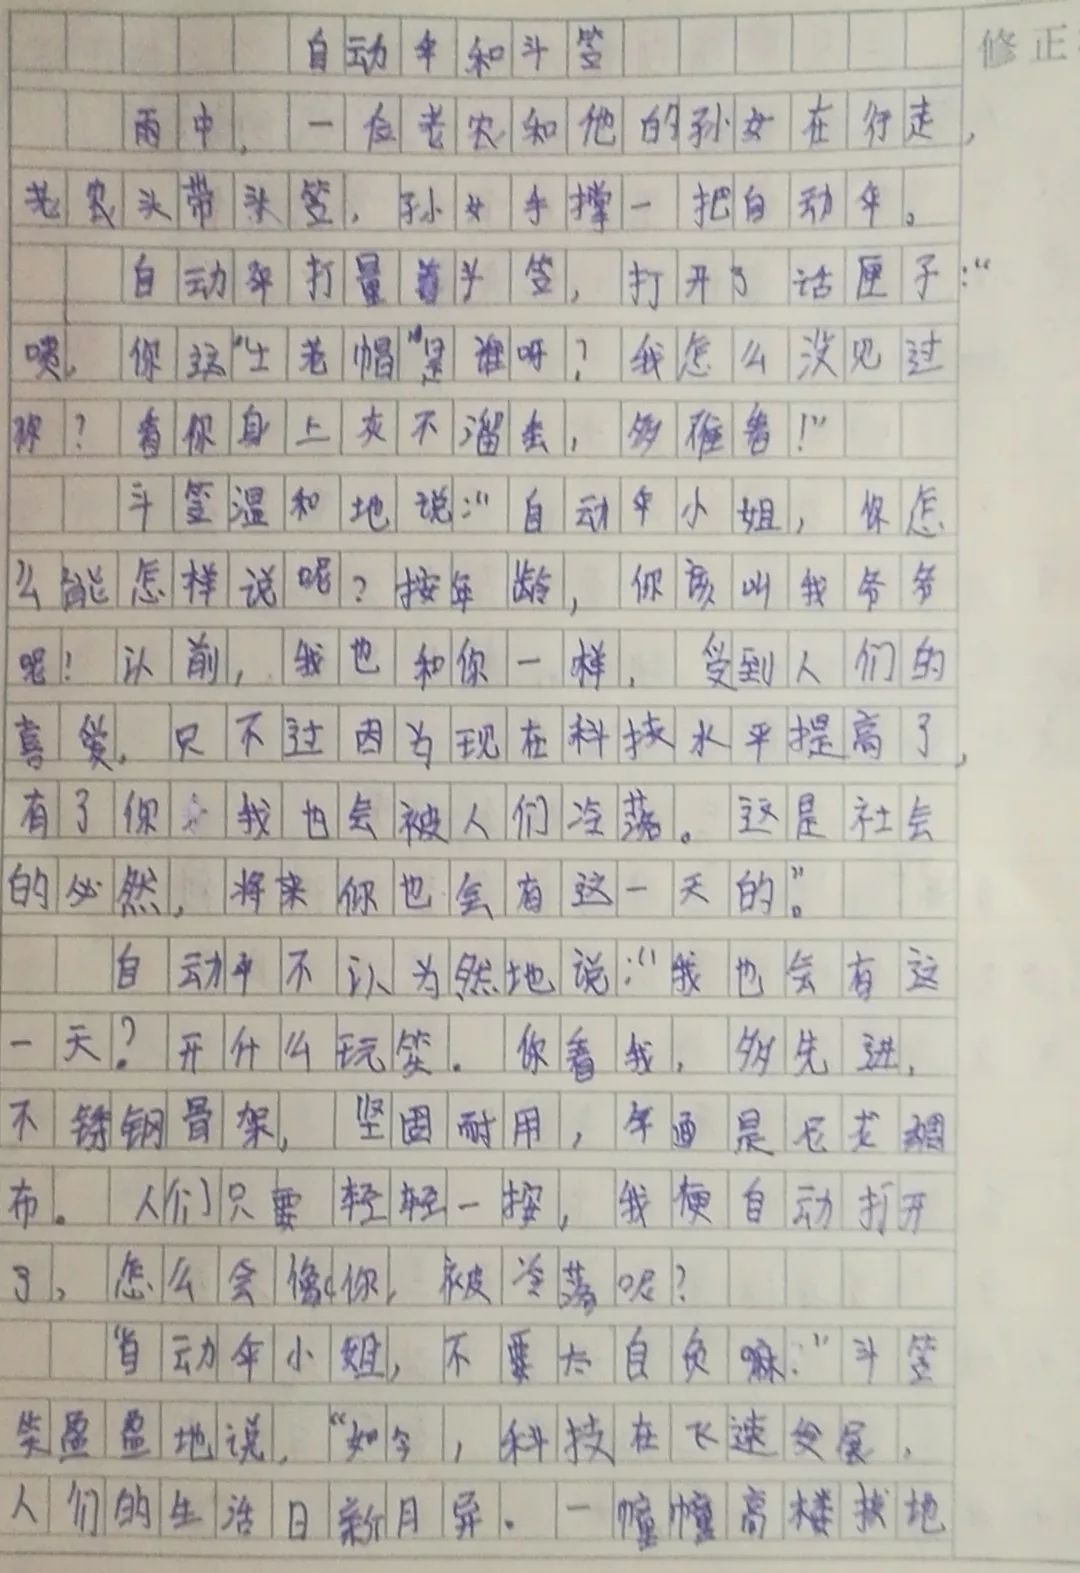 自动伞和斗笠
修正
雨中,一位老农和他的孙女在行走,
老农头带头笠,孙女手撑一把自动伞。
自动伞打量着斗笠,打开了话匣子:“
喂,你这“土老帽”是谁呀?我怎么没见过
你?看你身上灰不溜去,多难看!”
斗笠温和地说:“自动伞小姐,你怎
么能怎样说呢?按年龄,你该叫我爷爷
呢!认前,我也和你一样,受到人们的
喜爱,只不过因为现在科技水平提高了,
有了你 我也会被人们冷落。这是社会
的必然,将来你也会有这一天的。”
自动伞不认为然地说:“我也会有这
一天?开什么玩笑。你看我,多先进,
不锈钢骨架,坚固耐用,伞面是尼龙绸
布。人们只要轻轻一按,我便自动打开
了,怎么会像你,被冷落呢?
“自动伞小姐,不要太自负嘛:”斗笠
笑盈盈地说,“如今,科技在飞速发展,
人们的生活日新月异。一幢幢高楼拔地